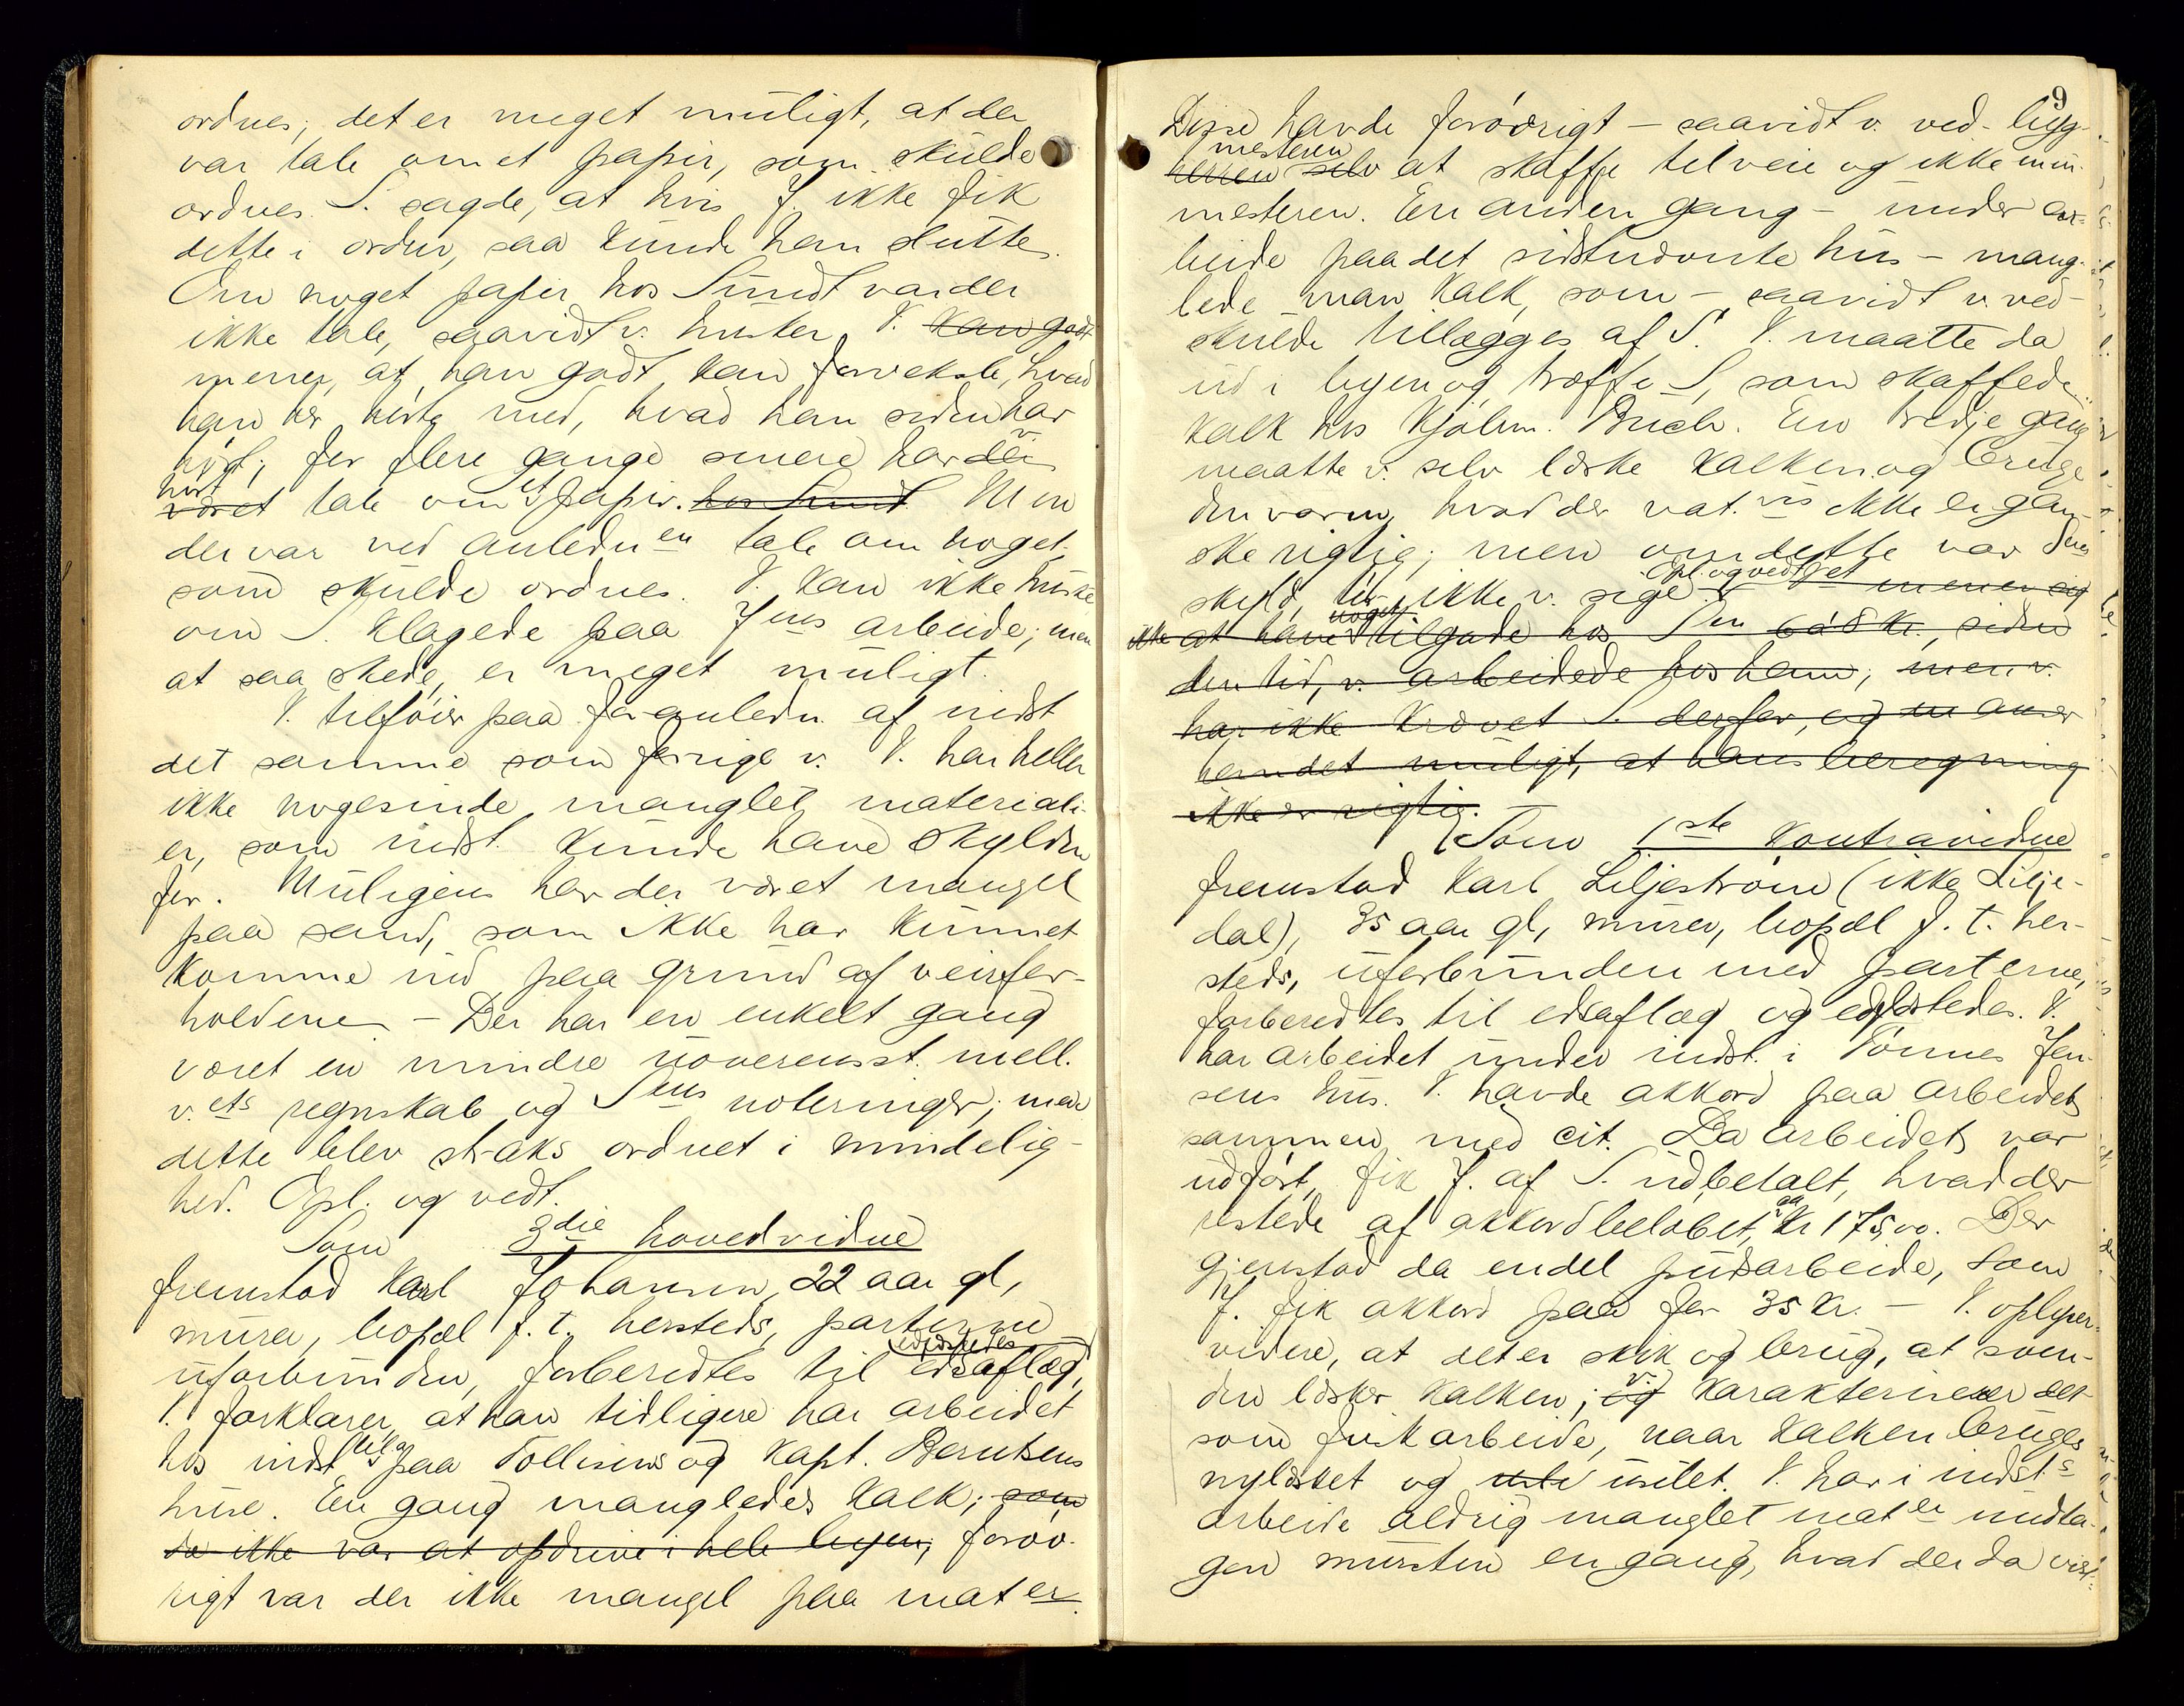 ordnes; det er meget muligt, at der
var tale om et papir, som skulde
ordnes. S. sagde, at hvis J. ikke fik
dette i orden, saa kunde han slutte.
Om noget papir hos Sundt var der
ikke tale, saavidt v. husker. V. kan godt
mener, at han godt kan forveksle, hvad
han her hørte med, hvad han siden har
hørt; for flere gange senere har v.
hørt
været tale om et papir. hos Sundt Men
der var ved anledn en tale om noget,
som skulde ordnes. V. kan ikke huske
om S. klagede paa J ens arbeide; men
at saa skede, er meget muligt.
V. tilføier paa foranledn. af indst
det samme som forrige v. V. har heller
ikke nogensinde manglet materiali-
er, som indst. kunde have skylden
for. Muligens har der været mangel
paa sand, som ikke har kunnet
komme ind paa grund af veirfor-
holdene – Der har en enkelt gang
været en mindre uoverensst. mell.
v. ets regnskab og S ens noteringer; men
dette blev straks ordnet i mindelig-
hed. Opl. og vedt.
Som 3die hovedvidne
fremstod Karl Johansen, 22 aar gl,
murer, bopæl f. t. hersteds, parterne
uforbunden, forberedtes til edsaflæg,
V. forklarer, at han tidligere har arbeidet
hos indst paa Tollisens og Kapt. Berntsens
huse. En gang mangledes kalk; som
da ikke var at opdrive i hele byen; forøv-
rigt var der ikke mangel paa mat er.
9
Disse havde forøvrigt – saavidt v. ved – byg-
mesteren
herren selv at skaffe tilveie og ikke mur-
mesteren. En anden gang – under ar-
beide paa det sidstnævnte hus – mang-
lede man kalk, som – saavidt v. ved –
skulde tillægges af S. V. maatte da
ud i byen og træffe S, som skaffede
kalk hos Kjøbm. Buch. En tredje gang
maatte v. selv læske kalken og bruge
den varm, hvad der nat. vis ikke er gan-
ske rigtig; men om dette var S ens
skyld, tør ikke v. sige. Opl. og vedt et mener sig
ikke at have noget tilgode hos S en 6 a 8 kr. siden
den tid, v. arbeidede hos ham; men v.
har ikke krævet S. derfor, og anser
det muligt, at hans beregning
ikke er rigtig.
Som 1ste kontravidne
fremstod Karl Liljestrøm (ikke Lilje-
dal), 35 aar gl, murer, bopæl f. t. her-
steds, uforbunden med parterne,
forberedtes til edsaflæg og edfæstedes. V.
har arbeidet under indst. i Tønnes Jen-
sens hus. V. havde akkord paa arbeidet
sammen med cit. Da arbeidet var
udført, fik J. af S. udbetalt, hvad der
restede af akkordbeløbet, ca kr 175,00. Der
gjenstod da endel pudsarbeide, som
J. fik akkord paa for 35 kr. – V. oplyser
videre, at det er skik og brug, at sven-
den læsker kalken; v. karakteriserer det
som fuskarbeide, naar kalken bruges
nylæsket og usilet. V. har i indst s
arbeide aldrig manglet mat er undta-
gen mursten en gang, hvad der da vist-